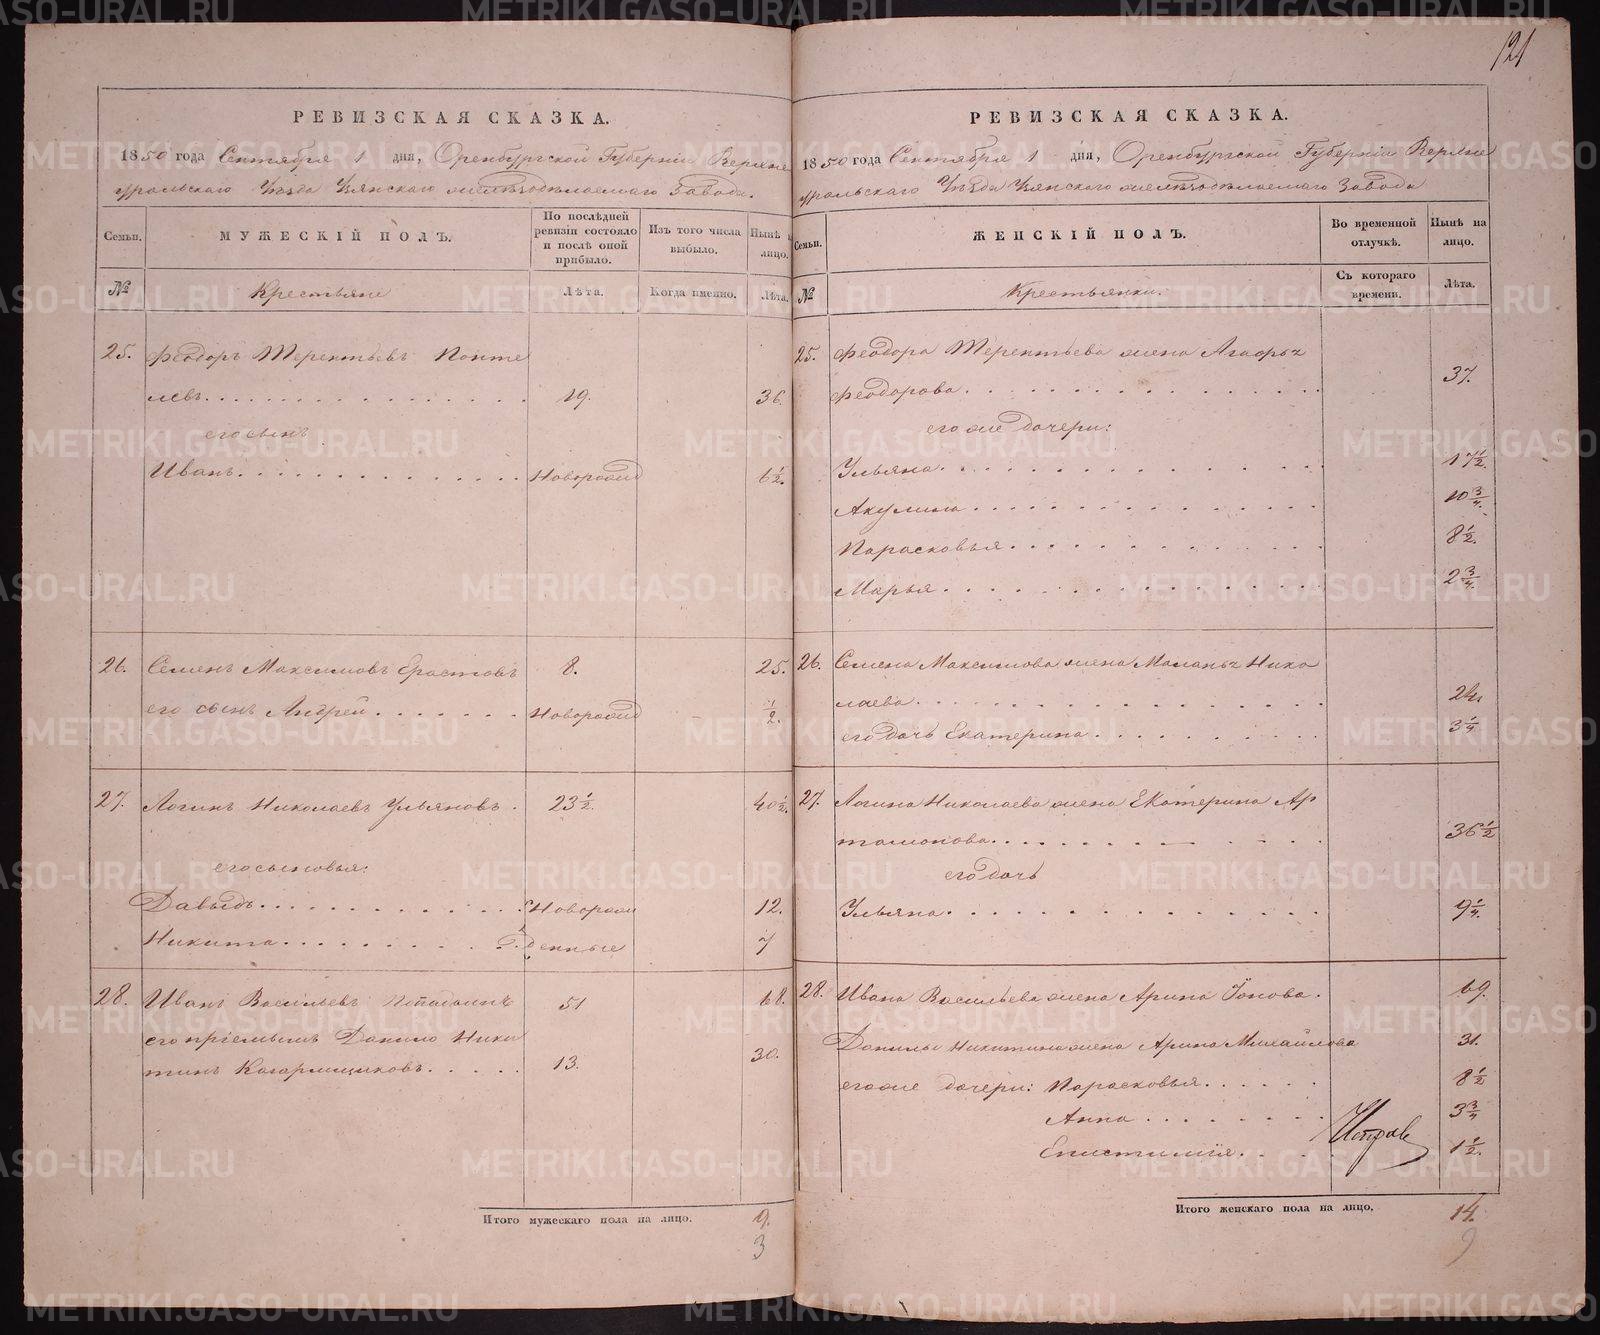 121
РЕВИЗСКАЯ СКАЗКА.
1850 года Сентября 1 дня, Оренбургской Губерніи Верхне
уральскаго Уѣзда Узянскаго желѣзодѣлаемаго Завода.
Семьи.
МУЖЕСКІЙ ПОЛЪ.
По послѣдней
ревизіи состояло
и послѣ оной
прибыло.
Изъ того числа
выбыло.
Нынѣ на
лицо.
№
Крестьяне
Лѣта.
Когда именно.
Лѣта.
25. Феодоръ Терентьевъ
левъ. 19. 36.
его сынъ
Иванъ. Новорожд 6½.
26. Семенъ Максимовъ Ерастовъ 8. 25.
его сынъ Андрей. Новорожд ½.
27. Логинъ Николаевъ Ульяновъ. 23½. 40½.
его сыновья:
Давыдъ. Новорож 12.
Никита. денные 7
28. Иванъ Васильевъ 51 68.
его пріемышъ Данило Ники
тинъ 13. 30.
Итого мужескаго пола на лицо. 9.
3
РЕВИЗСКАЯ СКАЗКА.
1850 года Сентября 1 дня, Оренбургской Губерніи Верхне
уральскаго Уѣзда Узянскаго желѣзодѣлаемаго Завода
Семьи.
ЖЕНСКІЙ ПОЛЪ.
Во временной
отлучкѣ.
Нынѣ на
лицо.
№
Крестьянки.
Съ котораго
времени.
Лѣта.
25. Феодора Терентьева жена Агафья
Феодорова. 37.
его же дочери:
Ульяна. 17½.
Акулина 10¾.
Парасковья. 8½.
Марья. 2¾.
26. Семена Максимова жена Маланья Нико
лаева. 24.
его дочь Екатерина. 3¼
27. Логина Николаева жена Екатерина Ар
тамонова. 36½
его дочь
Ульяна. 9¼.
28. Ивана Васильева жена Арина Іонова. 69.
Данилы Никитина жена Арина Михайлова 31.
его же дочери: Парасковья. 8½
Анна 3¾
Епистимія. 1½.
Итого женскаго пола на лицо. 14.
9
METRIKI.GASO-URAL.RU